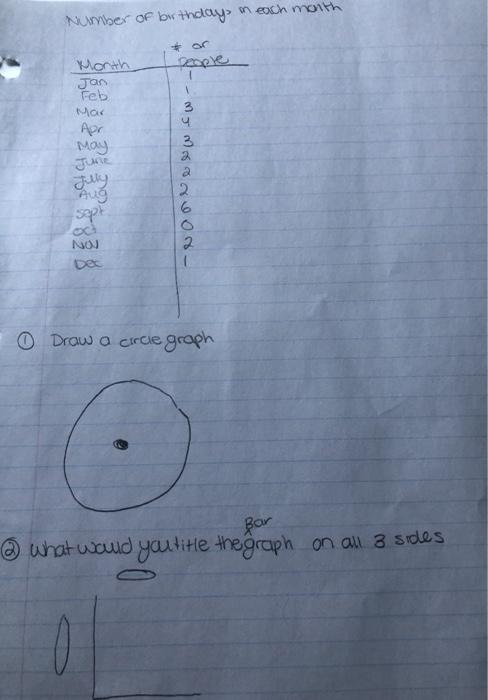 Number of birthdays in each month
# of
Month people
Jan 1
Feb 1
Mar 3
Apr 4
May 3
June 2
July 2
Aug 2
sept 6
oct 0
Nov 2
Dec 1
① Draw a circle graph
Bar
② what would you title the graph on all 3 sides